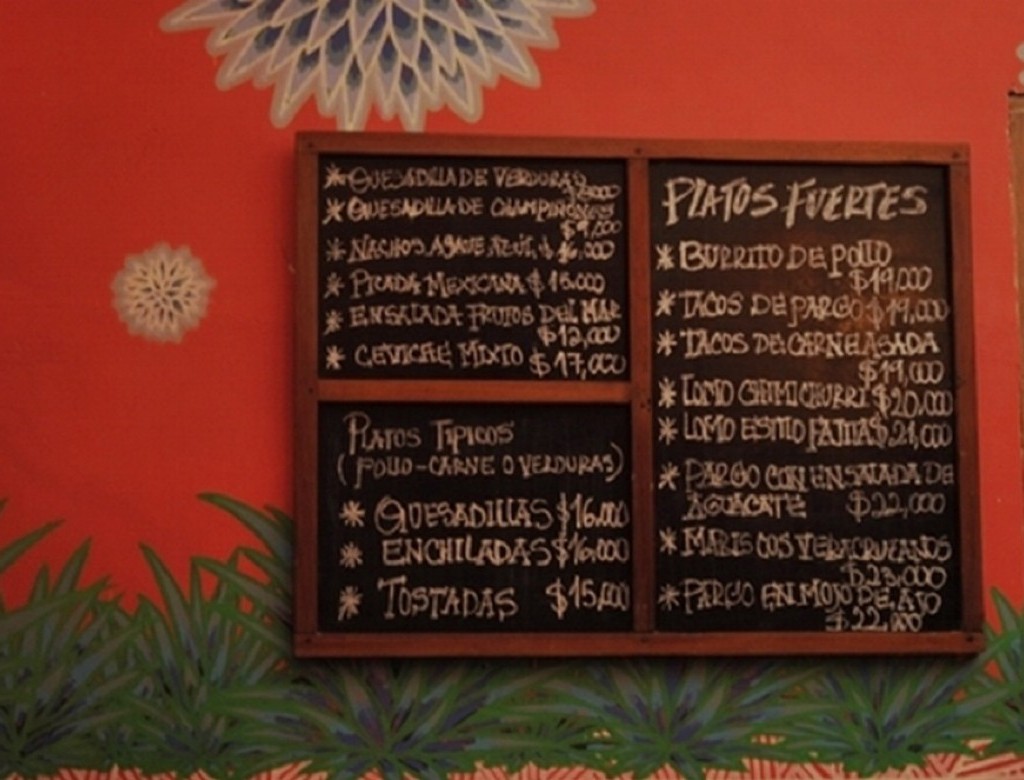 * QUESADILLA DE VERDURAS
* QUESADILLA DE CHAMPIÑONES
$9,000
* NACHOS AGAVE AZÚL $16,000
* PICADA MEXICANA $16.000
* ENSALADA FRUTOS DEL MAR
$12,000
* CEVICHE MIXTO $17,000
PLATOS TIPICOS
(POLLO-CARNE O VERDURAS)
* QUESADILLAS $16.000
* ENCHILADAS $16,000
* TOSTADAS $15,000
PLATOS FUERTES
* BURRITO DE POLLO
$19,000
* TACOS DE PARGO $19,000
* TACOS DE CARNE ASADA
$19,000
* LOMO CHIMICHURRI $20,000
* LOMO ESTILO FAJITAS $21,000
* PARGO CON ENSALADA DE
AGUACATE $22,000
* MARISCOS VERACRUZANOS
$23,000
* PARGO EN MOJO DE AJO
$22,000